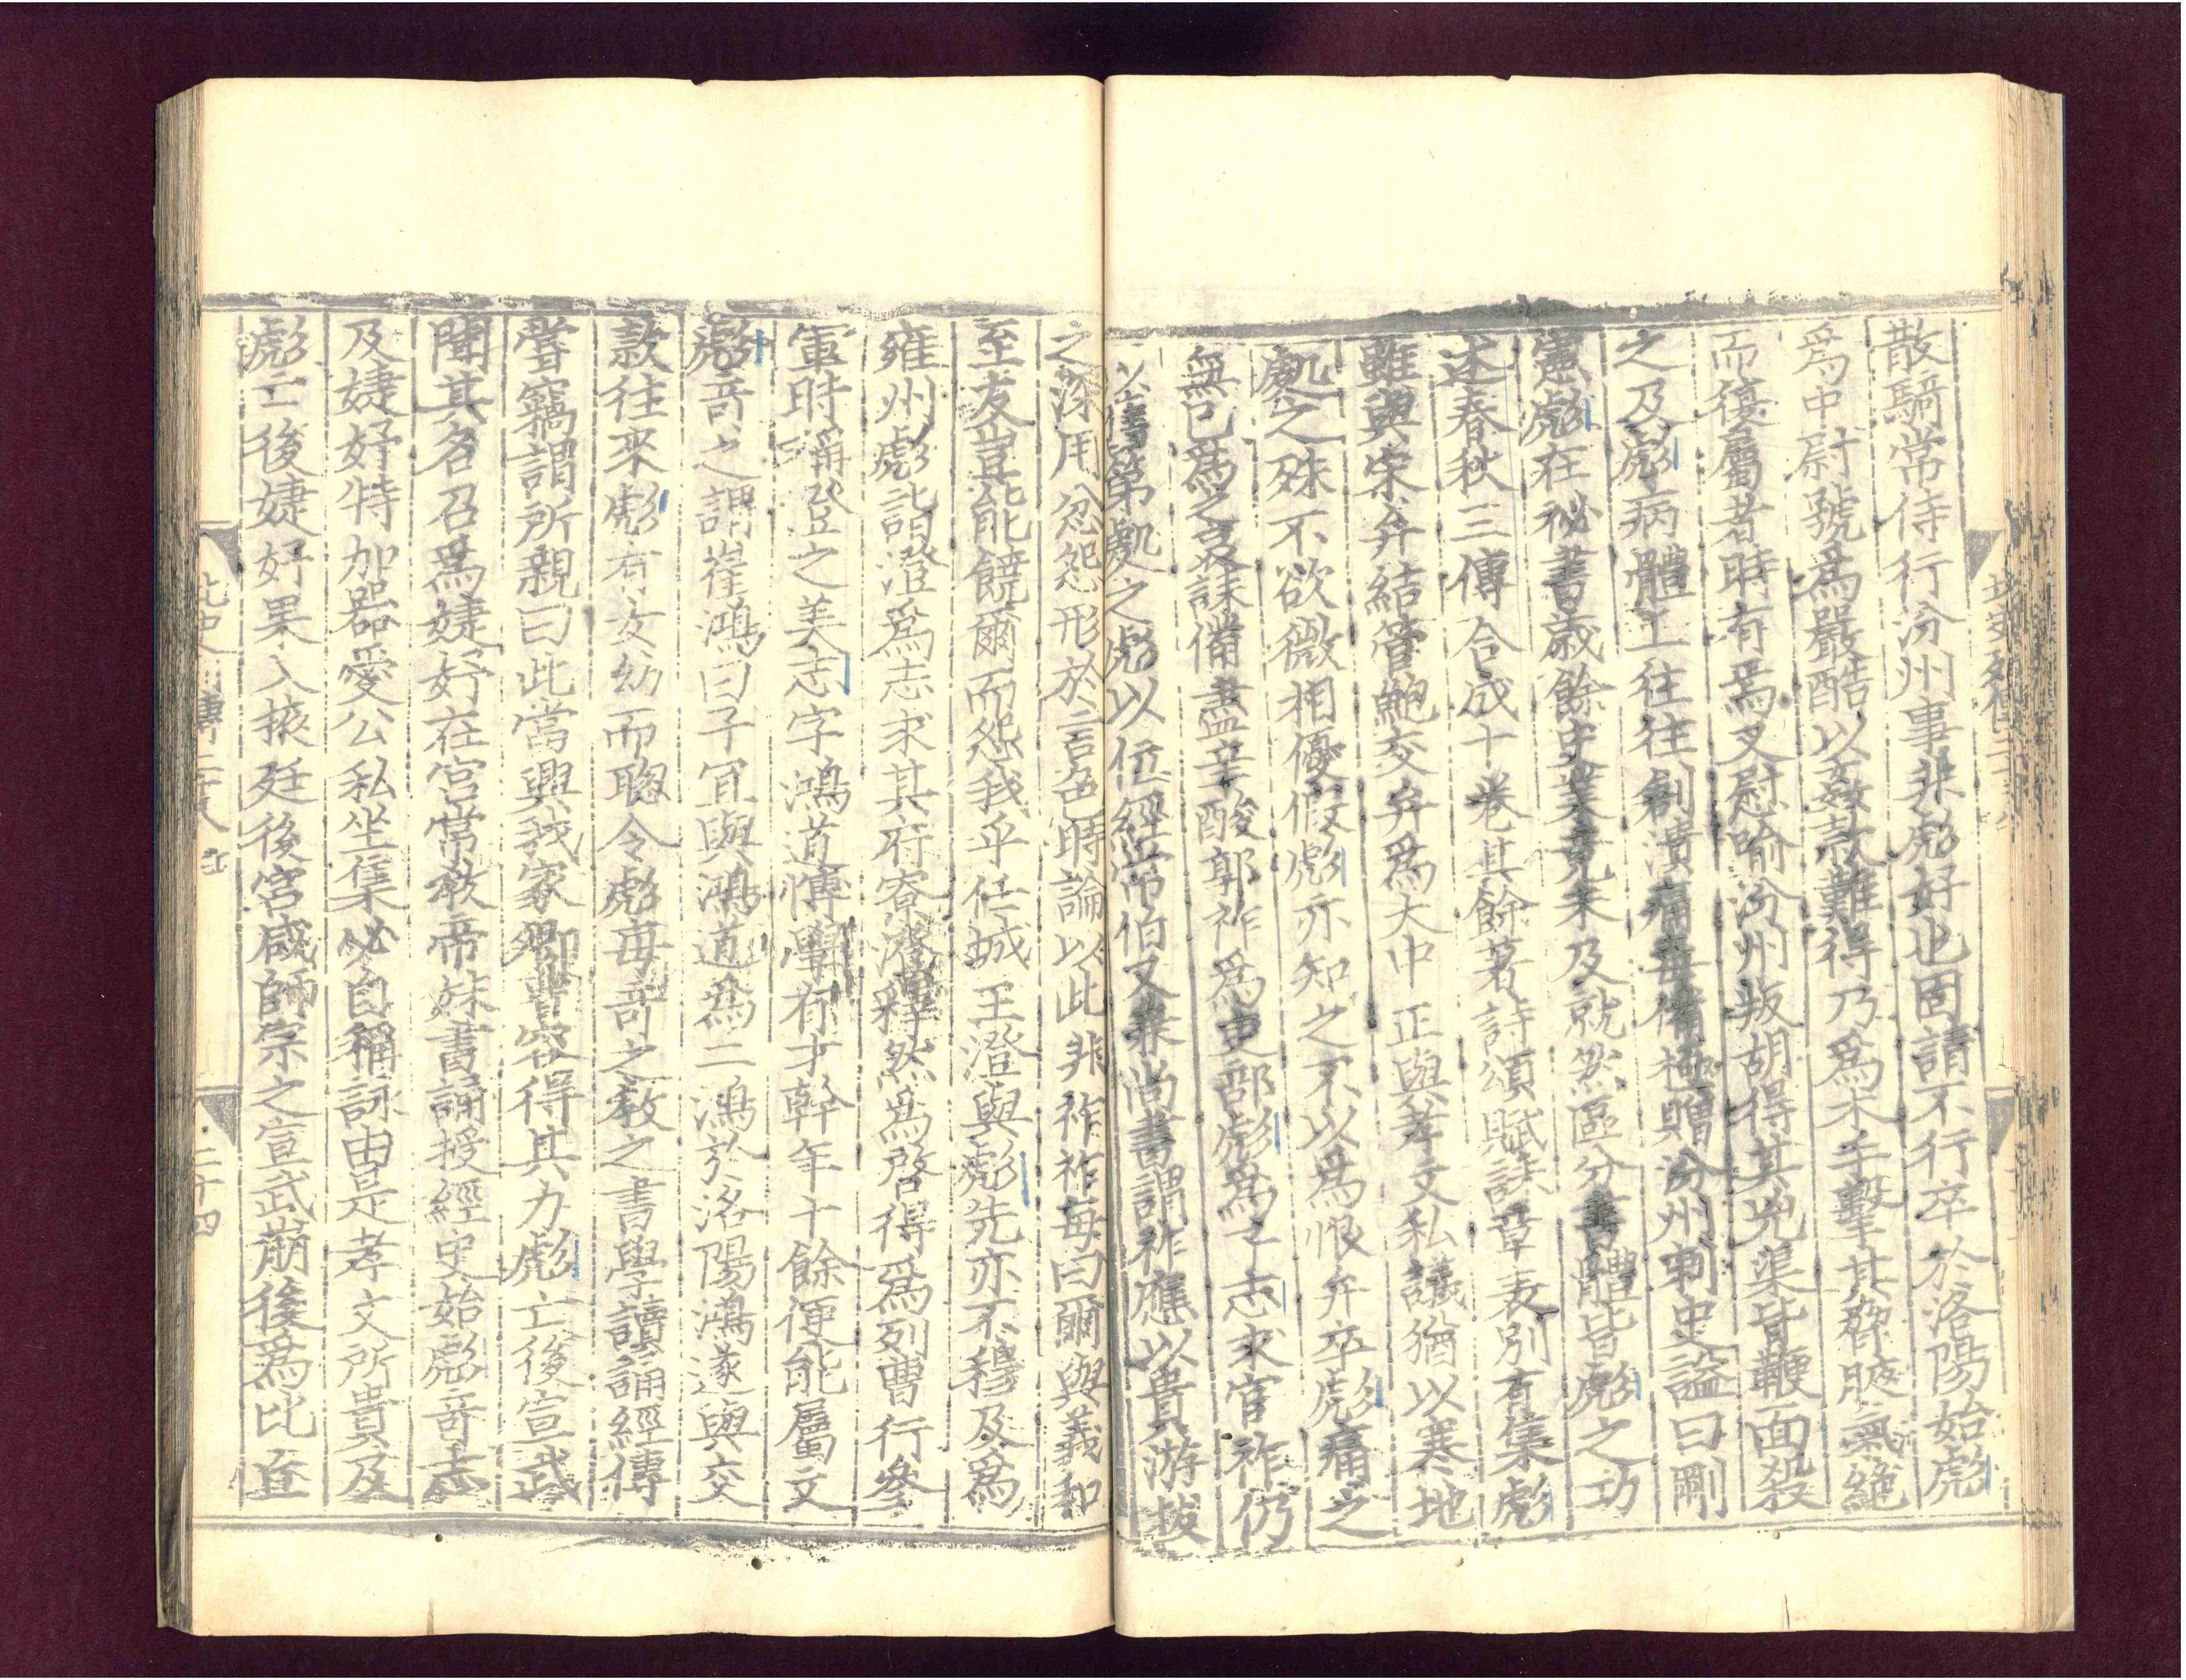 散騎常侍行汾州事非彪好也固請不行卒於洛陽始彪
爲中尉號爲嚴酷以姦款難得乃爲木手擊其脅腋氣絕
而復屬者時有焉又慰喻汾州叛胡得其兇渠皆鞭面殺
之及彪病體上往往創潰痛毒備極贈汾州刺史謚曰剛
憲彪在祕書歲餘史業竟未及就然區分書體皆彪之功
述春秋三傳合成十卷其餘著詩頌賦誄章表別有集彪
雖與宋弁結管鮑交弁爲大中正與孝文私議猶以寒地
處之殊不欲微相優假彪亦知之不以爲恨弁卒彪痛之
無已爲之哀誄備盡辛酸郭祚爲吏部彪爲子志求官祚仍
以舊第處之彪以位經常伯又兼尚書謂祚應以貴游拔
之深用忿怨形於言色時論以此非祚祚每曰爾與義和
至友豈能饒爾而怨我乎任城王澄與彪先亦不穆及爲
雍州彪詣澄爲志求其府寮澄釋然爲啓得爲列曹行參
軍時稱澄之美志字鴻道博學有才幹年十餘便能屬文
彪奇之謂崔鴻曰子宜與鴻道爲二鴻於洛陽鴻遂與交
款往來彪有女幼而聰令彪每奇之教之書學讀誦經傳
嘗竊謂所親曰此當興我家卿曹容得其力彪亡後宣武
聞其名召爲婕妤在宮常教帝妹書誦授經史始彪奇志
及婕妤特加器愛公私坐集必自稱詠由是孝文所貴及
彪亡後婕妤果入掖廷後宮咸師宗之宣武崩後爲比丘
北史列傳二十八
二十四